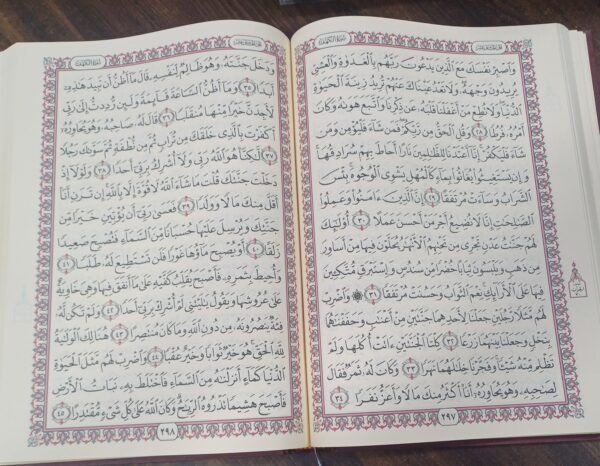 سُورَةُ الكَهْفِ
الجُزْءُ الخَامِسَ عَشَرَ
وَٱصْبِرْ نَفْسَكَ مَعَ ٱلَّذِينَ يَدْعُونَ رَبَّهُم بِٱلْغَدَوٰةِ وَٱلْعَشِيِّ
يُرِيدُونَ وَجْهَهُۥۖ وَلَا تَعْدُ عَيْنَاكَ عَنْهُمْ تُرِيدُ زِينَةَ ٱلْحَيَوٰةِ
ٱلدُّنْيَاۖ وَلَا تُطِعْ مَنْ أَغْفَلْنَا قَلْبَهُۥ عَن ذِكْرِنَا وَٱتَّبَعَ هَوَىٰهُ وَكَانَ
أَمْرُهُۥ فُرُطًا ٢٨ وَقُلِ ٱلْحَقُّ مِن رَّبِّكُمْۖ فَمَن شَآءَ فَلْيُؤْمِن وَمَن
شَآءَ فَلْيَكْفُرْۚ إِنَّآ أَعْتَدْنَا لِلظَّٰلِمِينَ نَارًا أَحَاطَ بِهِمْ سُرَادِقُهَاۚ
وَإِن يَسْتَغِيثُوا۟ يُغَاثُوا۟ بِمَآءٍ كَٱلْمُهْلِ يَشْوِى ٱلْوُجُوهَۚ بِئْسَ
ٱلشَّرَابُ وَسَآءَتْ مُرْتَفَقًا ٢٩ إِنَّ ٱلَّذِينَ ءَامَنُوا۟ وَعَمِلُوا۟
ٱلصَّٰلِحَٰتِ إِنَّا لَا نُضِيعُ أَجْرَ مَنْ أَحْسَنَ عَمَلًا ٣٠ أُو۟لَٰٓئِكَ
لَهُمْ جَنَّٰتُ عَدْنٍ تَجْرِى مِن تَحْتِهِمُ ٱلْأَنْهَٰرُ يُحَلَّوْنَ فِيهَا مِنْ أَسَاوِرَ
مِن ذَهَبٍ وَيَلْبَسُونَ ثِيَابًا خُضْرًا مِّن سُندُسٍ وَإِسْتَبْرَقٍ مُّتَّكِـِٔينَ
فِيهَا عَلَى ٱلْأَرَآئِكِۚ نِعْمَ ٱلثَّوَابُ وَحَسُنَتْ مُرْتَفَقًا ٣١ ۞ وَٱضْرِبْ
لَهُم مَّثَلًا رَّجُلَيْنِ جَعَلْنَا لِأَحَدِهِمَا جَنَّتَيْنِ مِنْ أَعْنَٰبٍ وَحَفَفْنَٰهُمَا
بِنَخْلٍ وَجَعَلْنَا بَيْنَهُمَا زَرْعًا ٣٢ كِلْتَا ٱلْجَنَّتَيْنِ ءَاتَتْ أُكُلَهَا وَلَمْ
تَظْلِم مِّنْهُ شَيْـًٔاۚ وَفَجَّرْنَا خِلَٰلَهُمَا نَهَرًا ٣٣ وَكَانَ لَهُۥ ثَمَرٌ فَقَالَ
لِصَٰحِبِهِۦ وَهُوَ يُحَاوِرُهُۥٓ أَنَا۠ أَكْثَرُ مِنكَ مَالًا وَأَعَزُّ نَفَرًا ٣٤
٢٩٧
سُورَةُ الكَهْفِ
الجُزْءُ الخَامِسَ عَشَرَ
وَدَخَلَ جَنَّتَهُۥ وَهُوَ ظَالِمٌ لِّنَفْسِهِۦ قَالَ مَآ أَظُنُّ أَن تَبِيدَ هَٰذِهِۦٓ
أَبَدًا ٣٥ وَمَآ أَظُنُّ ٱلسَّاعَةَ قَآئِمَةً وَلَئِن رُّدِدتُّ إِلَىٰ رَبِّى
لَأَجِدَنَّ خَيْرًا مِّنْهَا مُنقَلَبًا ٣٦ قَالَ لَهُۥ صَاحِبُهُۥ وَهُوَ يُحَاوِرُهُۥٓ
أَكَفَرْتَ بِٱلَّذِى خَلَقَكَ مِن تُرَابٍ ثُمَّ مِن نُّطْفَةٍ ثُمَّ سَوَّىٰكَ رَجُلًا
٣٧ لَّٰكِنَّا۠ هُوَ ٱللَّهُ رَبِّى وَلَآ أُشْرِكُ بِرَبِّىٓ أَحَدًا ٣٨ وَلَوْلَآ إِذْ
دَخَلْتَ جَنَّتَكَ قُلْتَ مَا شَآءَ ٱللَّهُ لَا قُوَّةَ إِلَّا بِٱللَّهِۚ إِن تَرَنِ أَنَا۠
أَقَلَّ مِنكَ مَالًا وَوَلَدًا ٣٩ فَعَسَىٰ رَبِّىٓ أَن يُؤْتِيَنِ خَيْرًا مِّن
جَنَّتِكَ وَيُرْسِلَ عَلَيْهَا حُسْبَانًا مِّنَ ٱلسَّمَآءِ فَتُصْبِحَ صَعِيدًا
زَلَقًا ٤٠ أَوْ يُصْبِحَ مَآؤُهَا غَوْرًا فَلَن تَسْتَطِيعَ لَهُۥ طَلَبًا ٤١
وَأُحِيطَ بِثَمَرِهِۦ فَأَصْبَحَ يُقَلِّبُ كَفَّيْهِ عَلَىٰ مَآ أَنفَقَ فِيهَا وَهِىَ خَاوِيَةٌ
عَلَىٰ عُرُوشِهَا وَيَقُولُ يَٰلَيْتَنِى لَمْ أُشْرِكْ بِرَبِّىٓ أَحَدًا ٤٢ وَلَمْ تَكُن لَّهُۥ
فِئَةٌ يَنصُرُونَهُۥ مِن دُونِ ٱللَّهِ وَمَا كَانَ مُنتَصِرًا ٤٣ هُنَالِكَ ٱلْوَلَٰيَةُ
لِلَّهِ ٱلْحَقِّۚ هُوَ خَيْرٌ ثَوَابًا وَخَيْرٌ عُقْبًا ٤٤ وَٱضْرِبْ لَهُم مَّثَلَ ٱلْحَيَوٰةِ
ٱلدُّنْيَا كَمَآءٍ أَنزَلْنَٰهُ مِنَ ٱلسَّمَآءِ فَٱخْتَلَطَ بِهِۦ نَبَاتُ ٱلْأَرْضِ
فَأَصْبَحَ هَشِيمًا تَذْرُوهُ ٱلرِّيَٰحُۗ وَكَانَ ٱللَّهُ عَلَىٰ كُلِّ شَىْءٍ مُّقْتَدِرًا ٤٥
٢٩٨